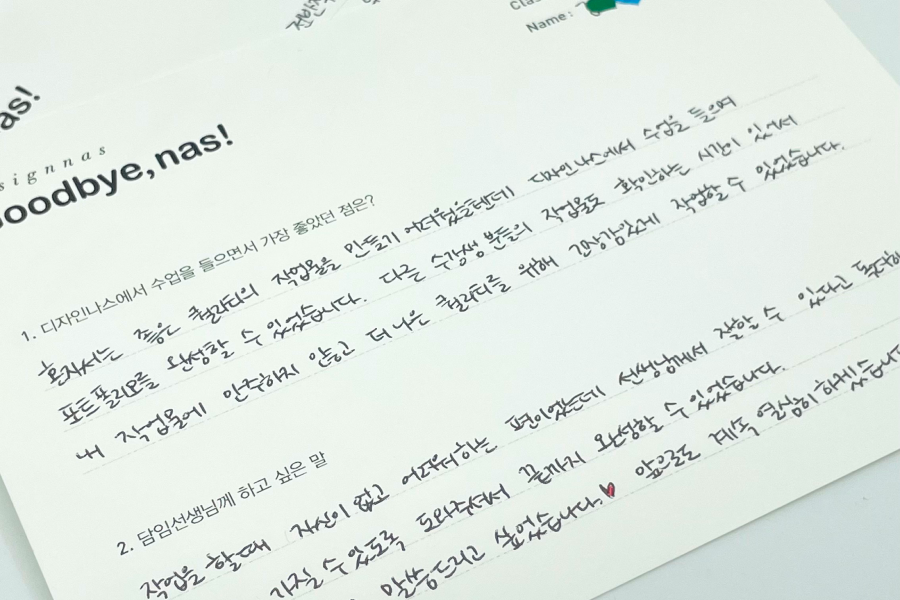 as!
Class
Name:
signnas
Goodbye, nas!
1. 디자인나스에서 수업을 들으면서 가장 좋았던 점은?
혼자서는 좋은 퀄리티의 작업물을 만들기 어려웠을텐데 디자인나스에서 수업을 들으며
포트폴리오를 완성할 수 있었습니다. 다른 수강생 분들의 작업물도 확인하는 시간이 있어서
내 작업물에 안주하지 않고 더 나은 퀄리티를 위해 긴장감있게 작업할 수 있었습니다.
2. 담임선생님께 하고 싶은 말
작업을 할때 자신이 없고 어려워하는 편이었는데 선생님께서 잘할 수 있다고 독려
가질 수 있도록 도와주셔서 끝까지 완성할 수 있었습니다.
말씀드리고 싶었습니다.♥ 앞으로도 계속 열심히 하겠습니다